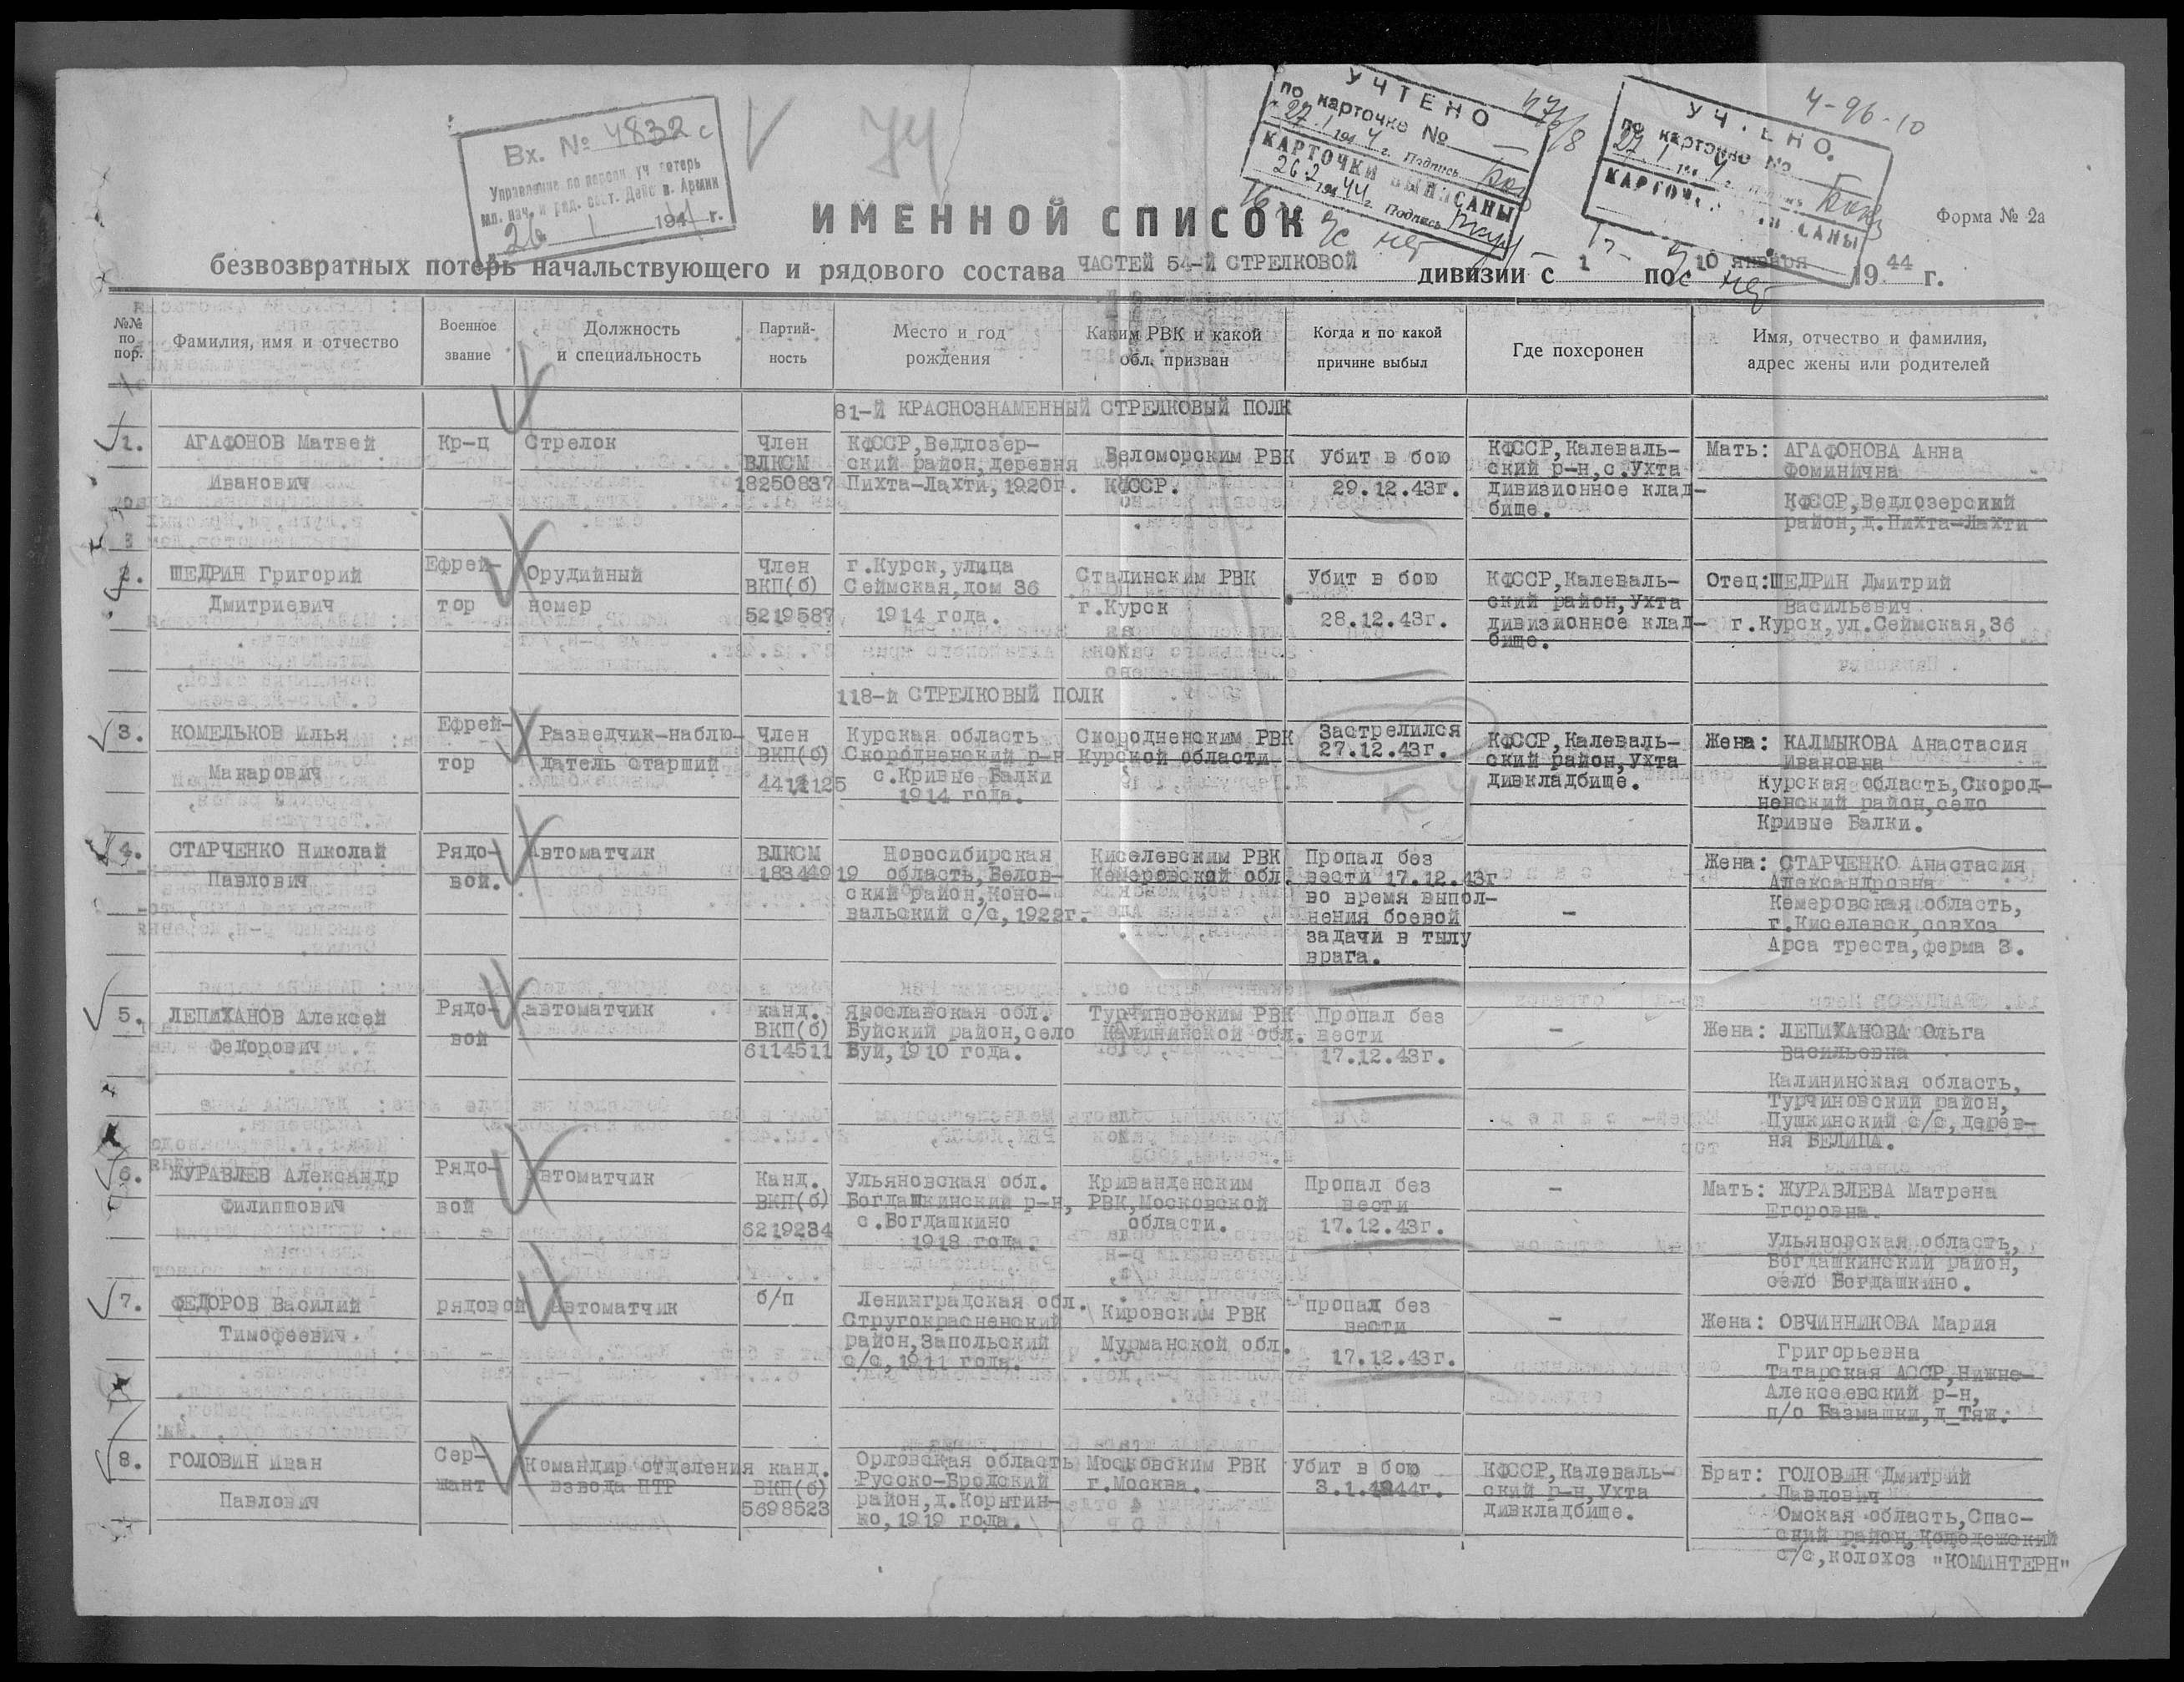 Вх. № 4832 с
Управление по персон. уч. потерь
мл. нач. и ряд. сост. Дейст. Армии
26 1 1944 г.
74
УЧТЕНО
по карточке №
27. 1 1944 г. Подпись
КАРТОЧКИ ВЫПИСАНЫ
26.2 1944 г. Подпись
УЧТЕНО.
по карточке №
27. 1 194 г. Подпись
КАРТОЧКИ ВЫПИСАНЫ
4-96-10
Форма № 2а
ИМЕННОЙ СПИСОК
безвозвратных потерь начальствующего и рядового состава ЧАСТЕЙ 54-Й СТРЕЛКОВОЙ дивизии с 1 по 10 января 1944 г.
№№ по пор.
Фамилия, имя и отчество
Военное звание
Должность и специальность
Партий-ность
Место и год рождения
Каким РВК и какой обл. призван
Когда и по какой причине выбыл
Где похоронен
Имя, отчество и фамилия, адрес жены или родителей
81-Й КРАСНОЗНАМЕННЫЙ СТРЕЛКОВЫЙ ПОЛК
1.
АГАФОНОВ Матвей
Иванович
Кр-ц
Стрелок
Член
ВЛКСМ
18250837
КФССР,Ведлозер-
ский район,деревня
Пихта-Лахти,1920г.
Беломорским РВК
КФССР.
Убит в бою
29.12.43г.
КФССР,Калеваль-
ский р-н,с.Ухта
дивизионное клад-
бище.
Мать: АГАФОНОВА Анна
Фоминична
КФССР,Ведлозерский
район,д.Пихта-Лахти
2.
ШЕДРИН Григорий
Дмитриевич
Ефрей-
тор
Орудийный
номер
Член
ВКП(б)
5219587
г.Курск,улица
Сеймская,дом 36
1914 года.
Сталинским РВК
г.Курск
Убит в бою
28.12.43г.
КФССР,Калеваль-
ский район,Ухта
дивизионное клад-
бище.
Отец:ШЕДРИН Дмитрий
Васильевич
г.Курск,ул.Сеймская,36
118-й СТРЕЛКОВЫЙ ПОЛК
3.
КОМЕЛЬКОВ Илья
Макарович
Ефрей-
тор
Разведчик-наблю-
датель старший
Член
ВКП(б)
4412125
Курская область
Скороднeнский р-н
с.Кривые Балки
1914 года.
Скородненским РВК
Курской области
Застрелился
27.12.43г.
КФССР,Калеваль-
ский район,Ухта
Дивкладбище.
Жена: КАЛМЫКОВА Анастасия
Ивановна
Курская область,Скород-
ненский район,село
Кривые Балки.
4.
СТАРЧЕНКО Николай
Павлович
Рядо-
вой.
Автоматчик
ВЛКСМ
18344919
Новосибирская
область,Белов-
ский район,Коно-
вальский с/с,1922г.
Киселевским РВК
Кемеровской обл.
Пропал без
вести 17.12.43г
во время выпол-
нения боевой
задачи в тылу
врага.
-
Жена: СТАРЧЕНКО Анастасия
Александровна
Кемеровская область,
г.Киселевск,совхоз
Арса треста,ферма 3.
5.
ЛЕПИХАНОВ Алексей
Федорович
Рядо-
вой
автоматчик
канд.
ВКП(б)
6114511
Ярославская обл.
Буйский район,село
Буй,1910 года.
Турчиновским РВК
Калининской обл.
Пропал без
вести
17.12.43г.
-
Жена: ЛЕПИХАНОВА Ольга
Васильевна
Калининская область,
Турчиновский район,
Пушкинский с/с,дерев-
ня БЕЛИЦА.
6.
ЖУРАВЛЕВ Александр
Филиппович
Рядо-
вой
автоматчик
Канд.
ВКП(б)
6219234
Ульяновская обл.
Богдашкинский р-н,
с.Богдашкино
1918 года.
Криванденским
РВК,Московской
области.
Пропал без
вести
17.12.43г.
-
Мать: ЖУРАВЛЕВА Матрена
Егоровна.
Ульяновская область,
Богдашкинский район,
село Богдашкино.
7.
ФЕДОРОВ Василий
Тимофеевич.
рядовой
автоматчик
б/п
Ленинградская обл.
Стругокрасненский
район,Запольский
с/с,1911 года.
Кировским РВК
Мурманской обл.
пропал без
вести
17.12.43г.
-
Жена: ОВЧИННИКОВА Мария
Григорьевна
Татарская АССР,Нижне-
Алексеевский р-н,
п/о Базмашки,д_Тяж.
8.
ГОЛОВИН Иван
Павлович
Сер-
жант
Командир отделения
взвода ПТР
канд.
ВКП(б)
5698523
Орловская область
Русско-Бродский
район,д.Корытин-
ко,1919 года.
Московским РВК
г.Москва.
Убит в бою
3.1.1944г.
КФССР,Калеваль-
ский р-н,Ухта
дивкладбище.
Брат: ГОЛОВИН Дмитрий
Павлович
Омская область,Спас-
ский район,Колодежский
с/с,колохоз "КОМИНТЕРН"